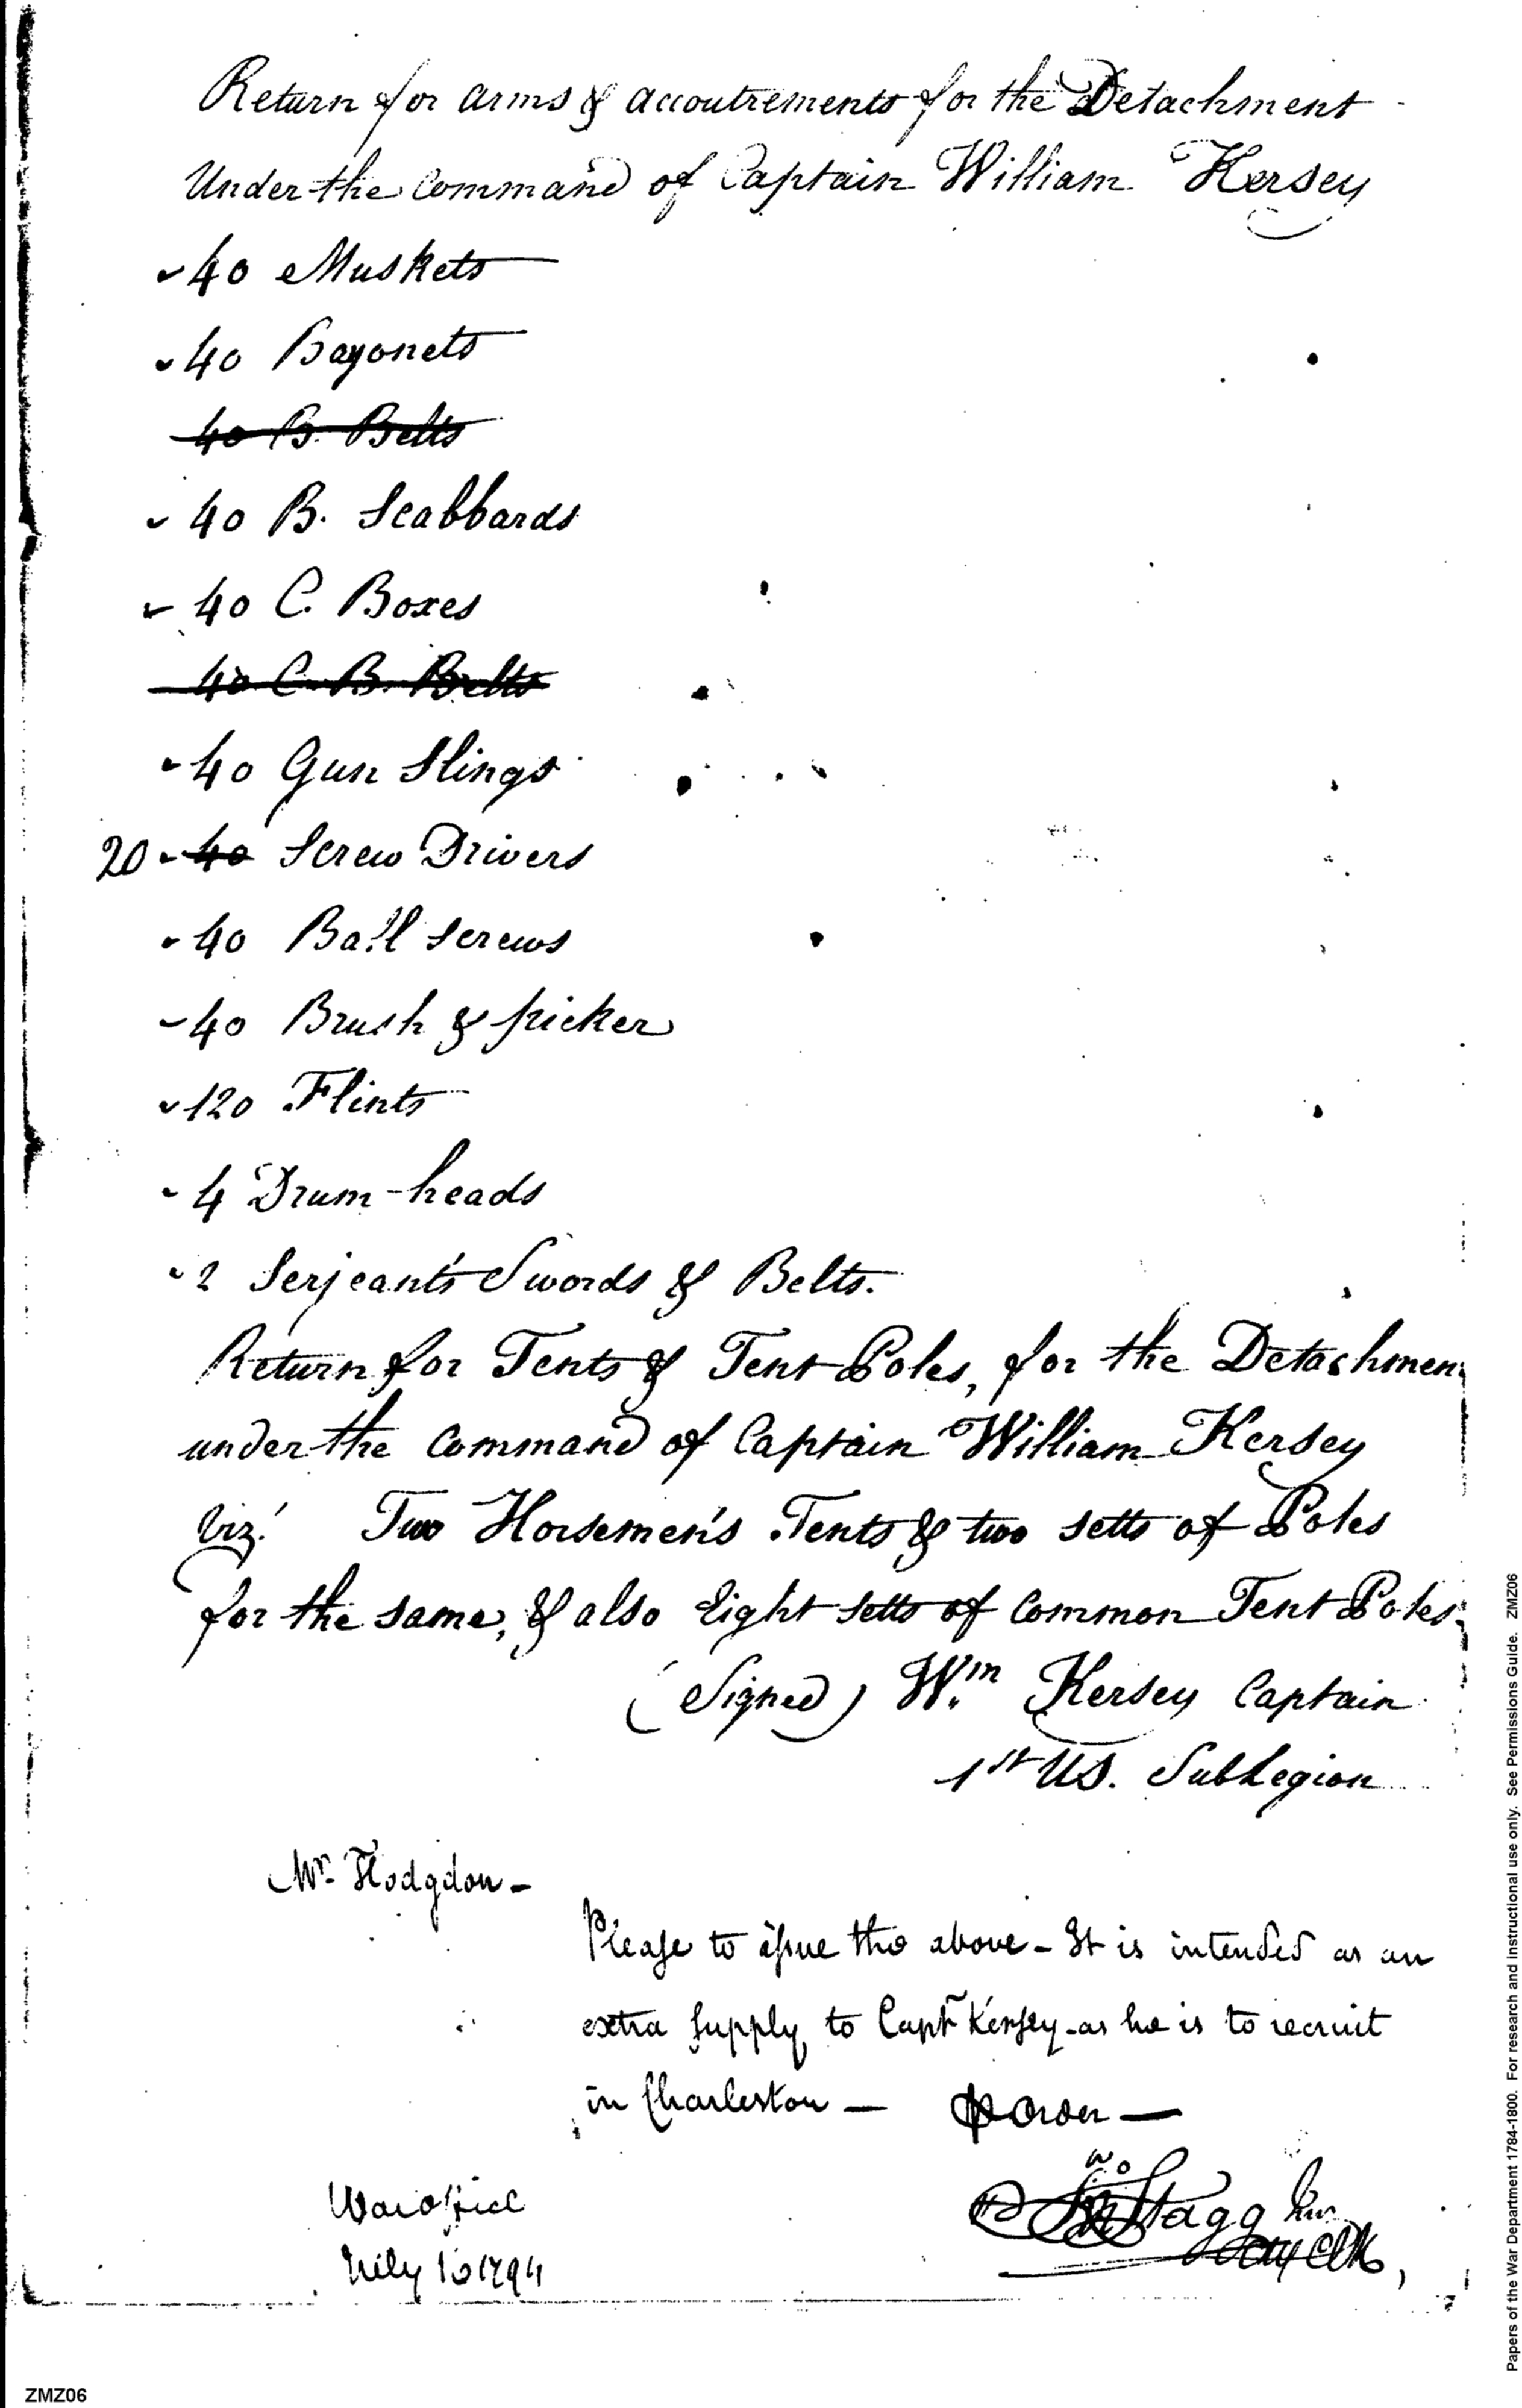 Return for arms & accoutrements for the Detachment
Under the Command of Captain William Kersey
40 Muskets
40 Bayonets
40 B. Belts
40 B. Scabbards
40 C. Boxes
40 C. B. Belts
40 Gun Slings
20 40 Screw Drivers
40 Ball Screws
40 Brush & picker
120 Flints
4 Drum-heads
2 Serjeant's Swords & Belts.
Return for Tents & Tent Poles, for the Detachmen
under the Command of Captain William Kersey
Viz! Two Horsemen's Tents & two setts of Poles
for the same, & also Eight setts of Common Tent Poles
(Signed) Wm Kersey Captain
1st US. SubLegion
Mr. Hodgdon -
Please to issue the above - It is intended as an
extra supply to Capt Kersey - as he is to recruit
in Charleston — order —
Jno Stagg Junr
War office
July 10 1794
Papers of the War Department 1784-1800. For research and instructional use only. See Permissions Guide. ZMZ06
ZMZ06